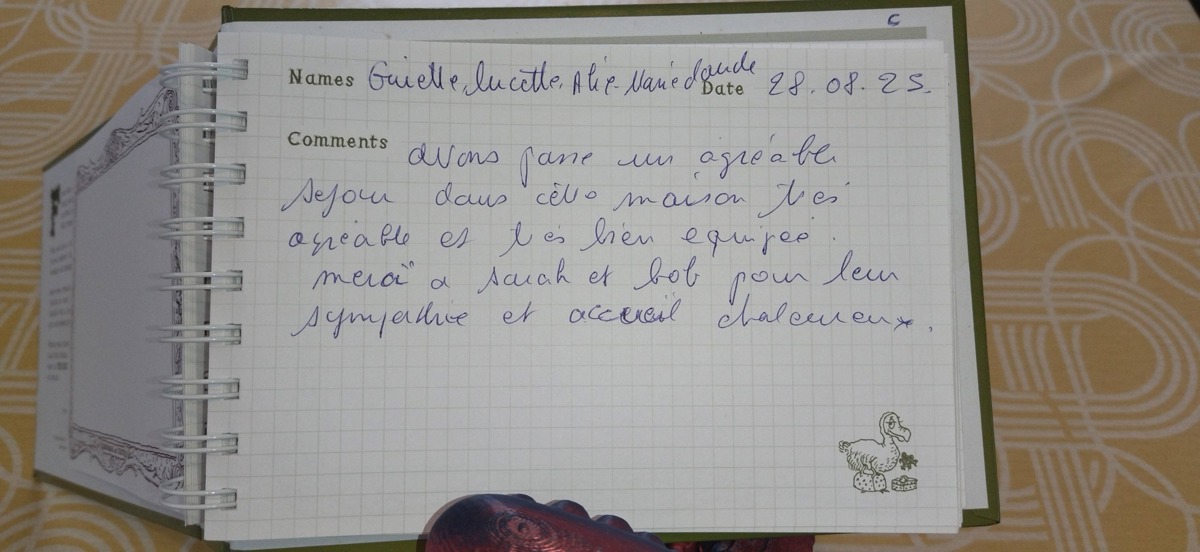 Names Giselle, Lucette, Alix Marie claude
Date 28.08.25.
Comments avons passe un agréable
sejour dans cette maison très
agréable et très bien equipée.
merci a Sarah et bob pour leur
sympathie et accueil chaleureux.